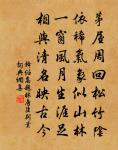 茅屋周回松竹陰
依稀氣象似山林
一窗風月生涯足
相與清名映古今